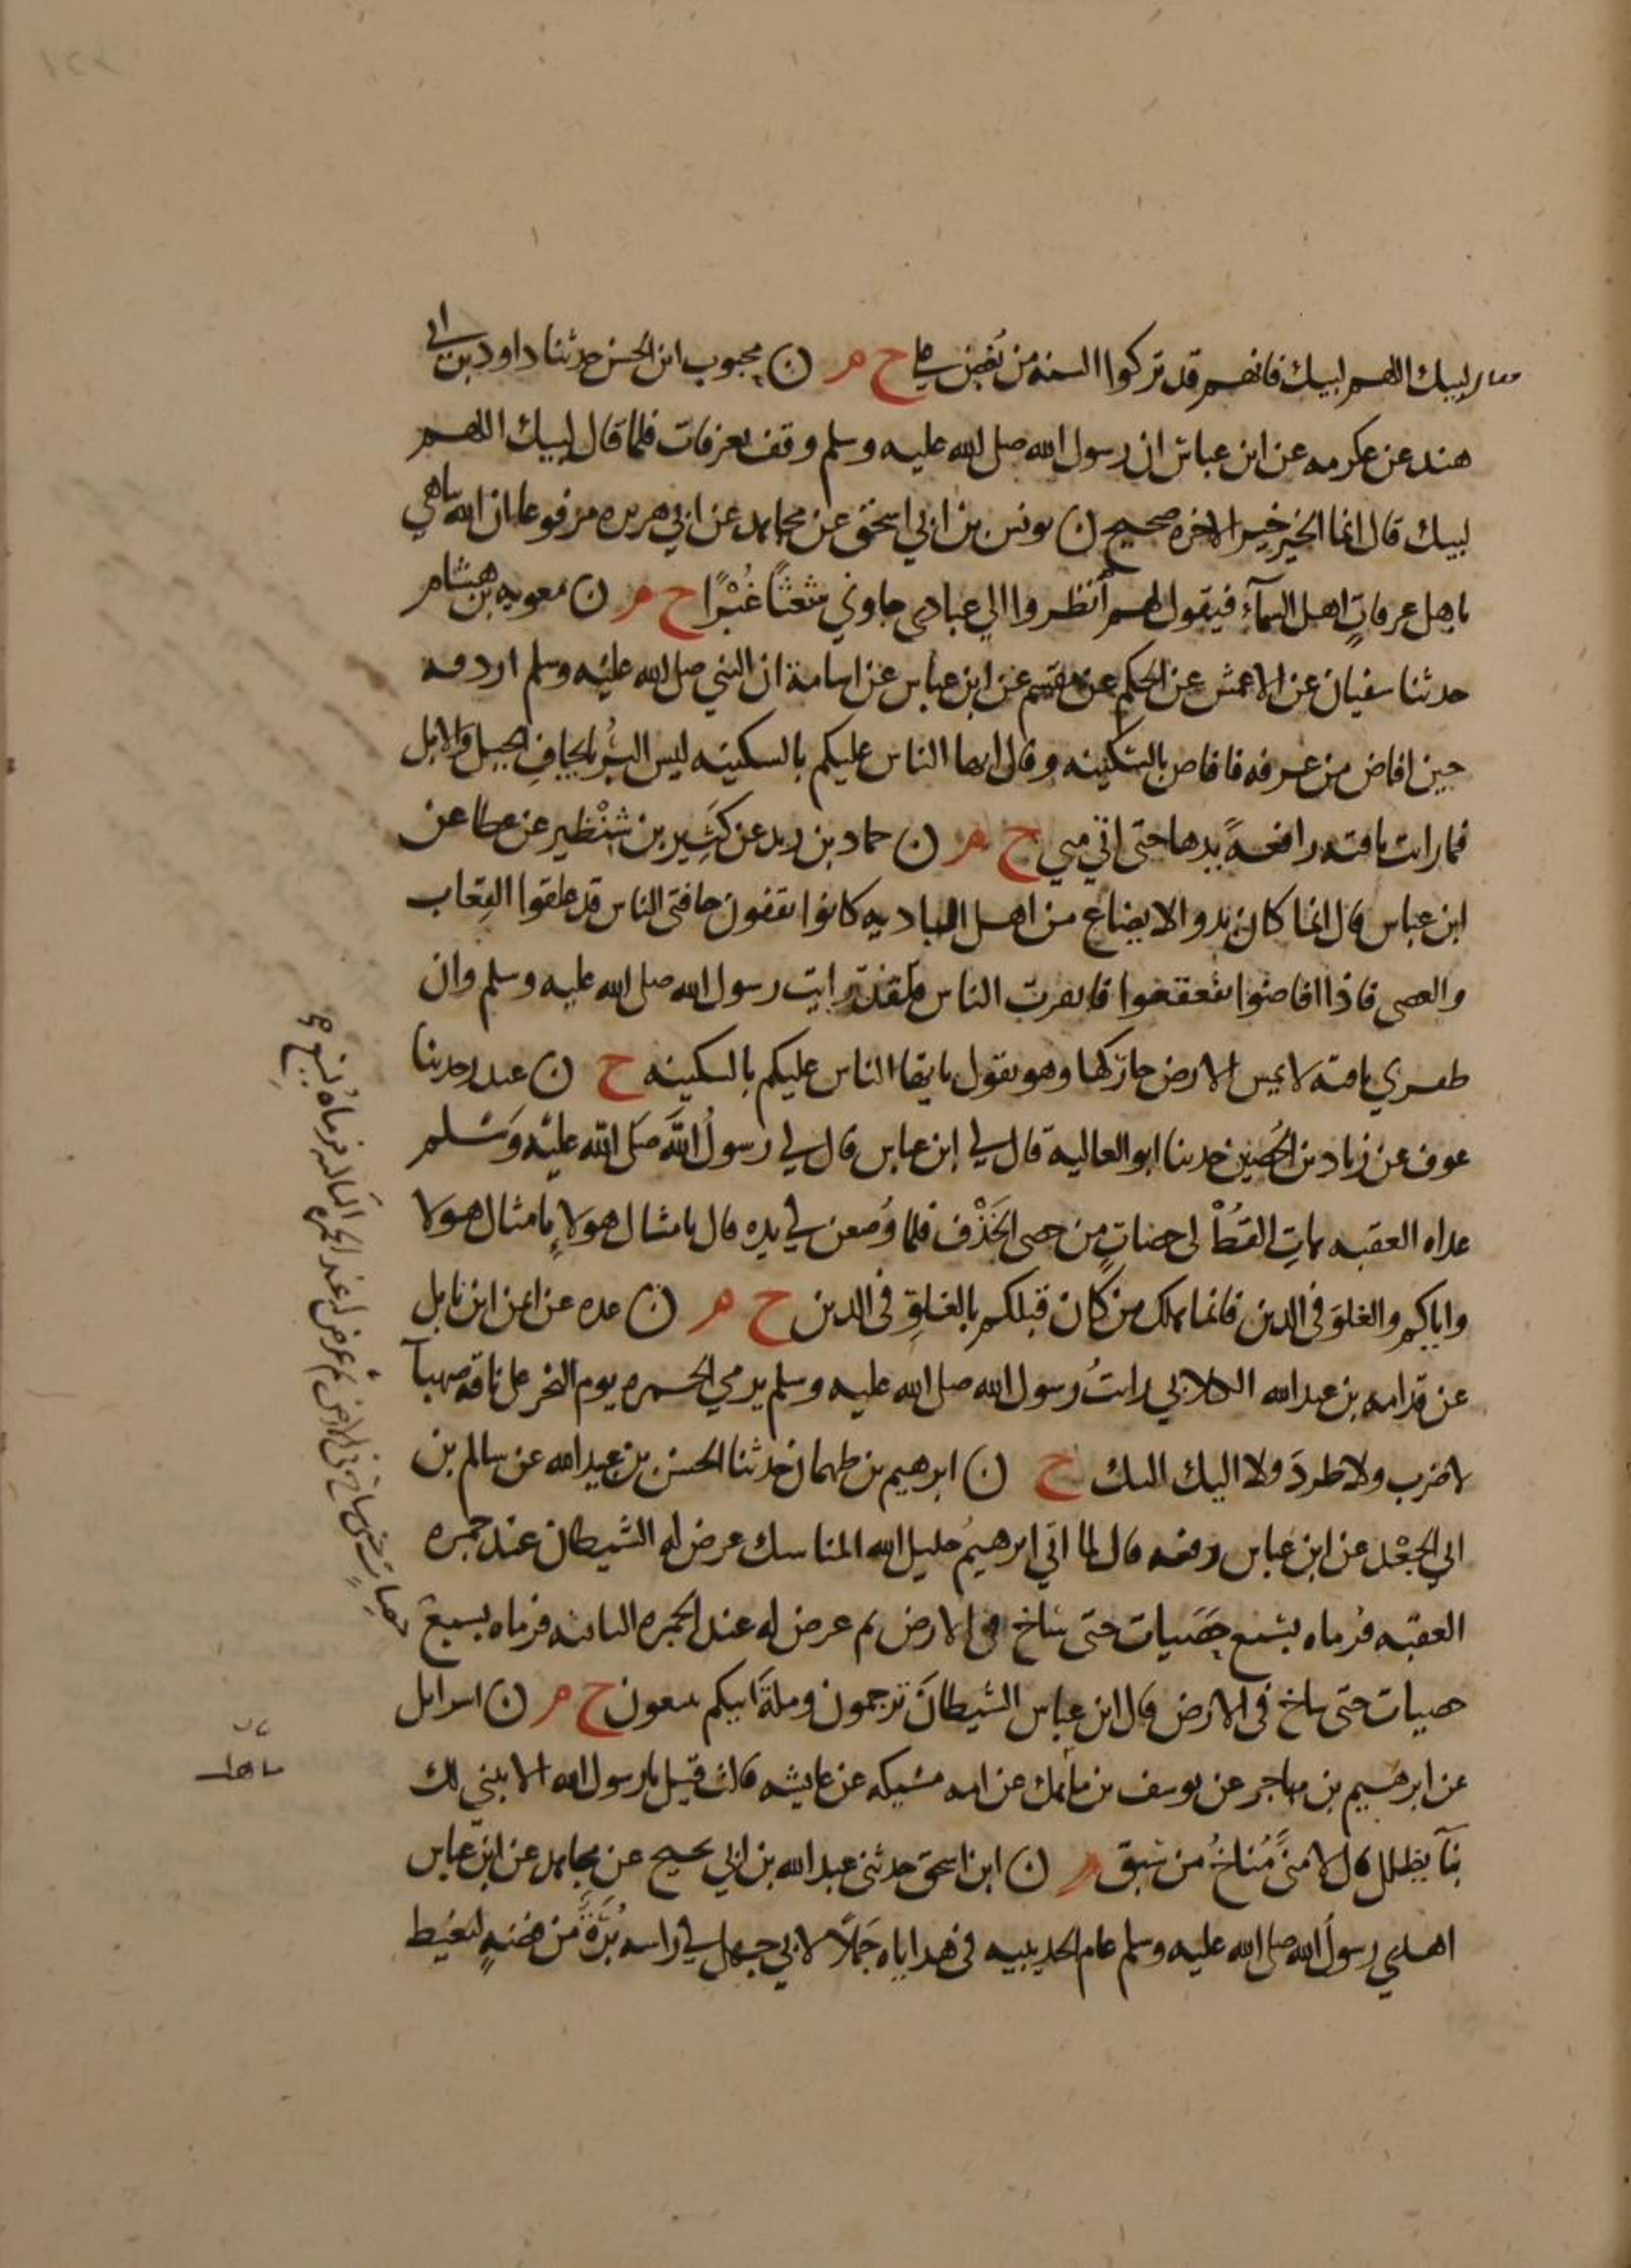 فقال لبيك اللهم لبيك فانهم قد تركوا السنه من بُغض علي خ م ن محبوب ابن الحسن حدثنا داود بن ابي
هند عن عكرمه عن ابن عباس ان رسول الله صلى الله عليه وسلم وقف بعرفات فلما قال لبيك اللهم
لبيك قال انما الخير خير الاخره صحيح ن يونس بن ابي اسحق عن مجاهد عن ابي هريره مرفوعا ان الله يباهي
باهل عرفاتٍ اهل السمآء فيقول لهم أنظروا الي عبادي جاوني شعثًا غُبْرًا خ م ن معويه بن هشام
حدثنا سفيان عن الاعمش عن الحكم عن مقسم عن ابن عباس عن اسامة ان النبي صلى الله عليه وسلم اردفه
حين افاض من عرفه فافاض بالسكينه وقال ايها الناس عليكم بالسكينه ليس البِرُ بايجافِ الخيل والابل
فما رايت ناقته رافعةً يدها حتى اتي مني خ م ن حماد بن زيد عن كثِير بن شِنْظير عن عطا عن
ابن عباس قال انما كان بدو الايضاع من اهل الباديه كانوا يقفون حافتي الناس قد علقوا القِعاب
والعصي فاذا افاضوا تقعقعوا فانفرت الناس فلقد رايت رسول الله صلى الله عليه وسلم وان
ظفري ناقته لا يمس الارض حاركها وهو يقول يا ايها الناس عليكم بالسكينه خ ن عبد حدثنا
عوف عن زياد بن الحُصَين حدثنا ابو العالية قال لي ابن عباس قال لي رسولُ اللَّه صَلى الله عليْه وَسَلم
غداه العقبه هاتِ القُطْ لي حصياتٍ من حصى الخَذْف فلما وُضعن في يده قال بامثال هولاءِ بامثال هولا
واياكم والغلوَ في الدين فانما هلك من كان قبلكم بالغلوِّ في الدين خ م ن عده عن ايمن ابن نابل
عن قدامه بن عبد الله الكلابي رايتُ رسول الله صلى الله عليه وسلم يرمي الجمره يوم النحر على ناقه صهبآ
لا ضرب ولا طردَ ولا اليك اليك خ ن ابرهيم بن طهمان حدثنا الحسن بن عبيد الله عن سالم بن
ابي الجَعْد عن ابن عباس رفعه قال لما اتي ابرهيمُ خليل الله المناسك عرض له الشيطان عند جمره
العقبه فرماه بسَبع حَصَيات حتى ساخ في الارض ثم عرض له عند الجمره الثانيه فرماه بسبع
حصيات حتى ساخ في الارض قال ابن عباس الشيطانَ ترجمون وملةَ ابيكم تتبعون خ م ن اسرايل
عن ابرهيم بن مهاجر عن يوسف بن ماهك عن امه مُسَيكه عن عايشه قالت قيل يا رسول الله الا نبني لك
بنآ يظلك قال لا منًى مُناخُ من سَبق م ن ابن اسحق حدثني عبد الله بن ابي نجيح عن مجاهد عن ابن عباس
اهدي رسولُ الله صلى الله عليه وسلم عام الحديبيه في هداياه جَمَلًا لابي جهل في راسه بُرَةٌ من فضهٍ ليغيظ
حصياتٍ حتى ساخ في الارض ثم عرض له عند الجمره الثالثه فرماه بسبع صح